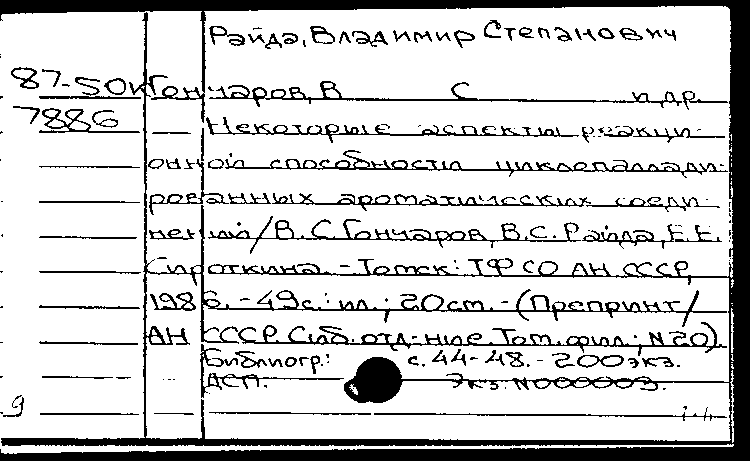 Райда, Владимир Степанович
87-50к Гончаров, В С и др.
7886 Некоторые аспекты реакци-
онной способности циклопаллади-
рованных ароматических соеди-
нений/В.С. Гончаров, В.С. Райда, Е.Е.
Сироткина. - Томск: ТФ СО АН СССР,
1986. - 49с.: ил.; 20см. - (Препринт/
АН СССР. Сиб. отд-ние. Том. фил.; N20).
Библиогр.: с. 44-48. - 200экз.
ДСП. Экз. N000003.
9